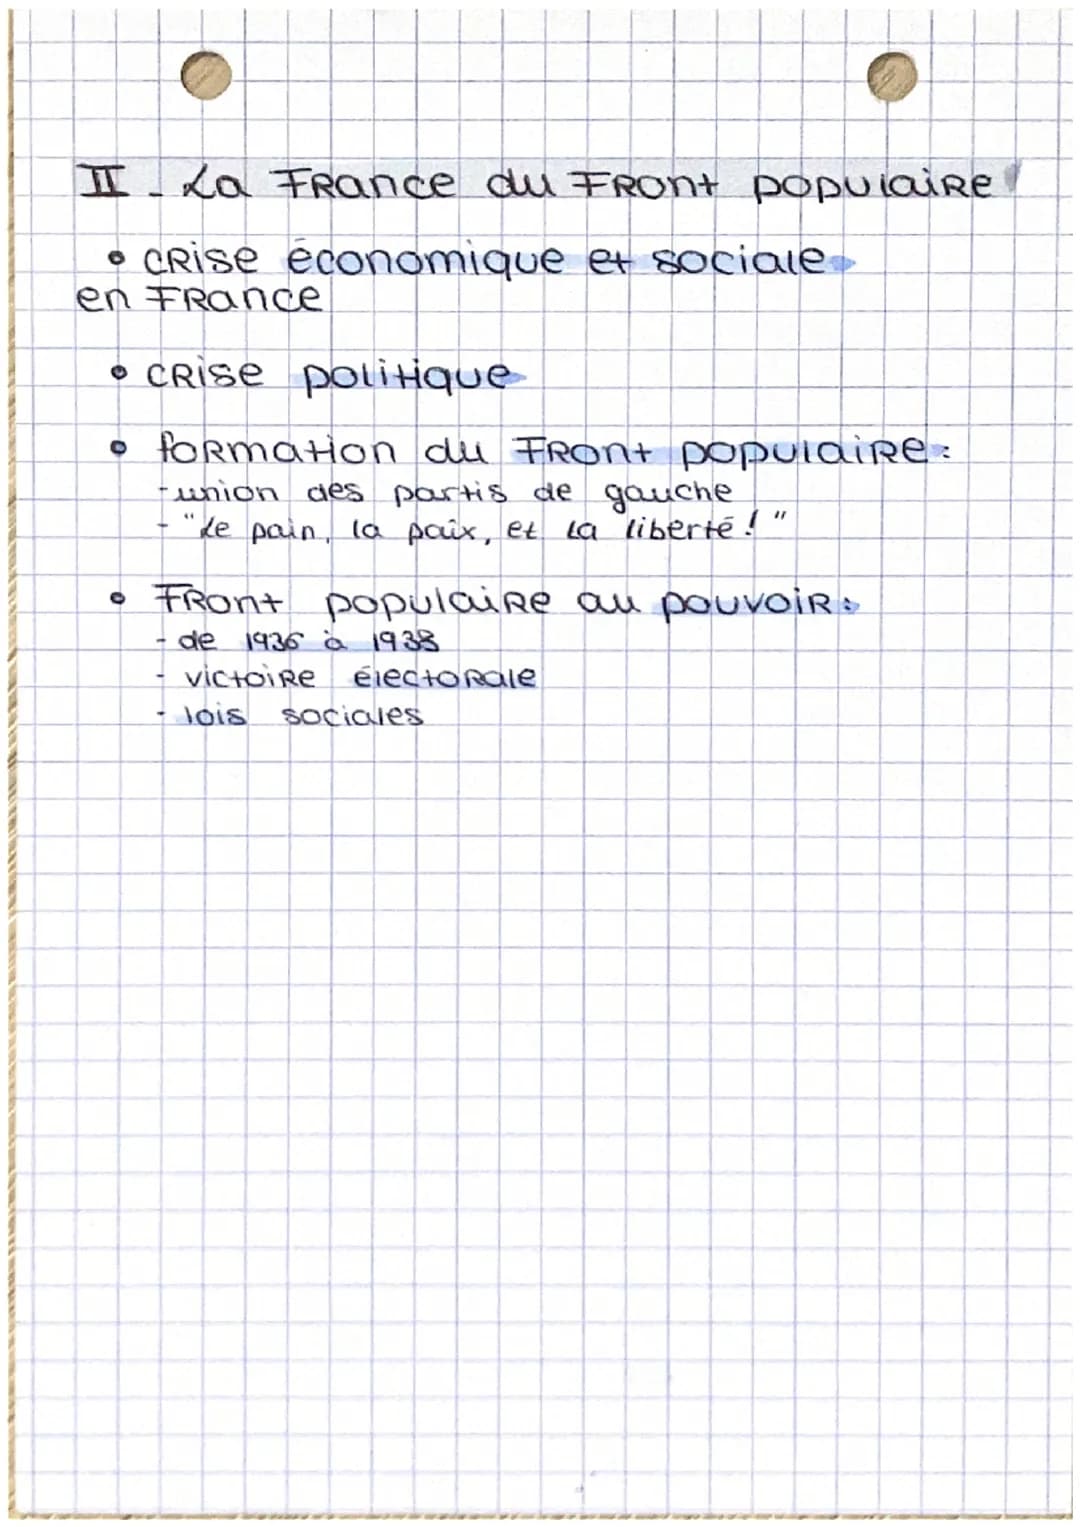 II - La France du Front populaire
• crise économique et sociale
en France
• crise politique
• formation du Front populaire :
- union des partis de gauche
- "Le pain, la paix, et la liberté ! "
• Front populaire au pouvoir :
- de 1936 à 1938
- victoire électorale
- lois sociales